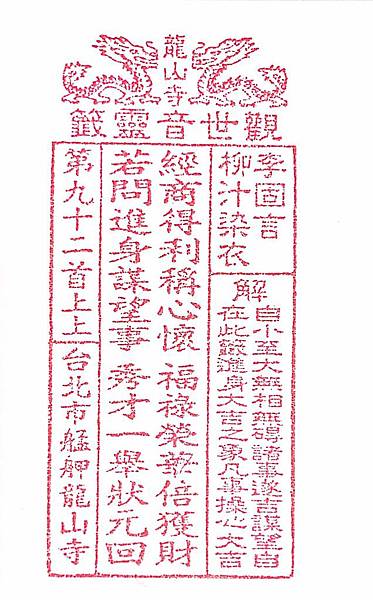 龍山寺
觀世音靈籤
李固言
柳汁染衣
解
自小至大無相無礙諸事遂吉謀望自
在此籤進身大吉之象凡事操心大吉
經商得利稱心懷 福祿榮華倍獲財
若問進身謀望事 秀才一舉狀元回
第九十二首上上
台北市艋舺龍山寺